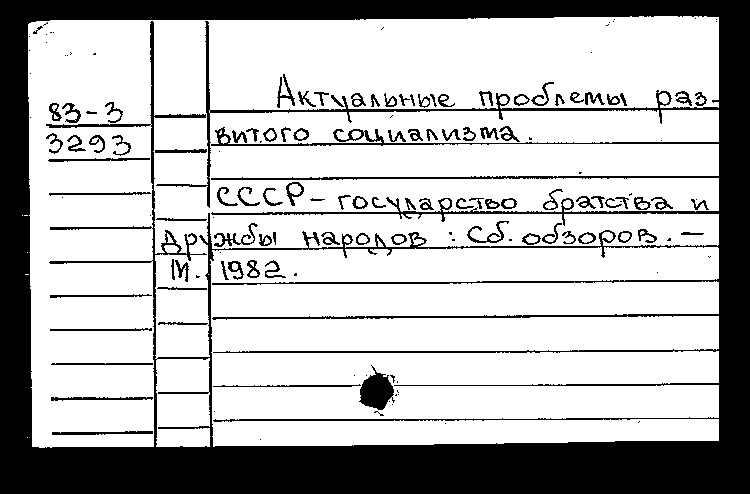 83-3
3293
Актуальные проблемы раз-
витого социализма.
СССР - государство братства и
дружбы народов : Сб. обзоров. —
М., 1982.